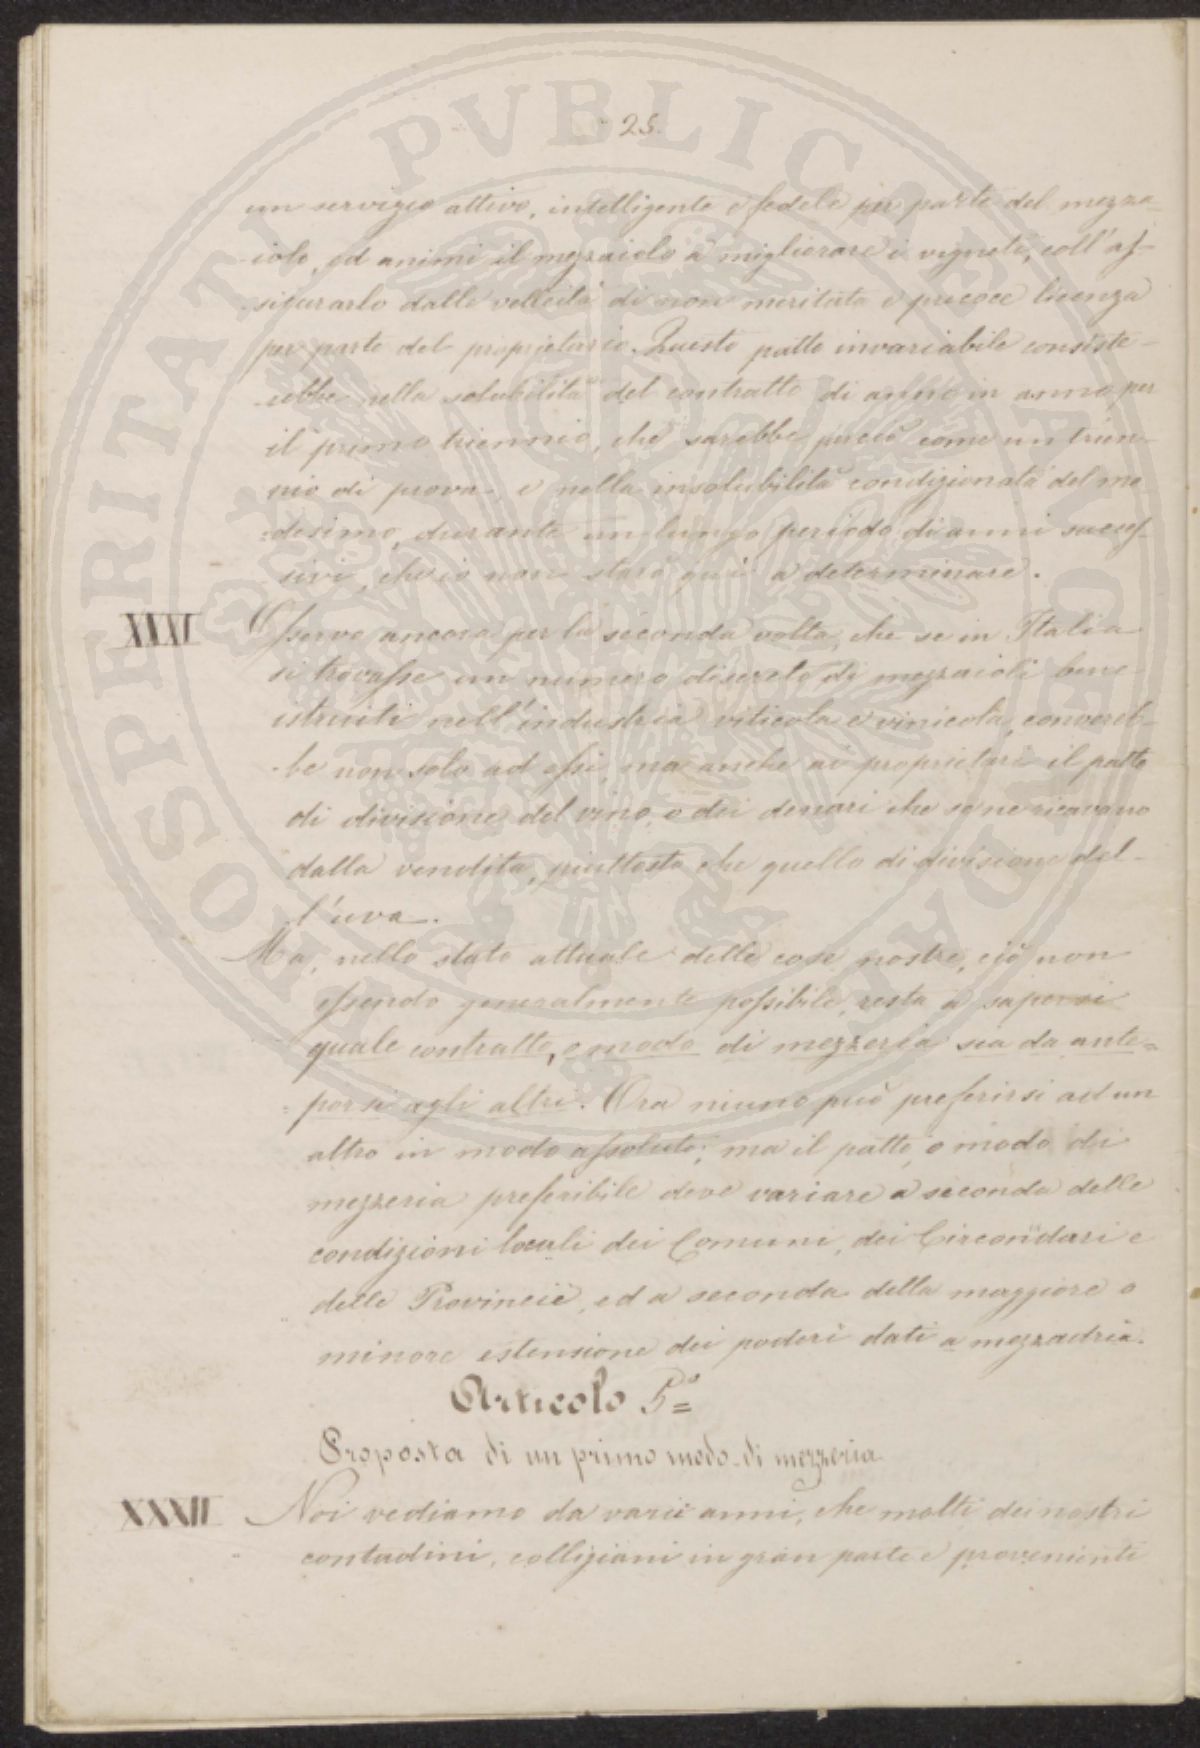 25.
un servizio attivo, intelligente e fedele per parte del mezza-
iolo, ed animi il mezzaiolo a migliorare i vigneti, coll'as-
sicurarlo dalle velleità di non meritata e precoce licenza
per parte del proprietario. Questo patto invariabile consiste-
rebbe nella solubilità del contratto di anno in anno, per
il primo triennio, che sarebbe perciò come un trien-
nio di prova e nella insolubilità condizionata del me
=desimo, durante un lungo periodo di anni succes-
sivi, che io non starò qui a determinare.
XXXI Osservo ancora per la seconda volta, che se in Italia
si trovasse un numero discreto di mezzaioli bene
istruiti nell'industria viticola e vinicola, converreb-
-be non solo ad essi, ma anche ai proprietari il patto
di divisione del vino, o dei denari che se ne ricavano
dalla vendita, piuttosto che quello di divisione del-
l'uva.
Ma, nello stato attuale delle cose nostre, ciò non
essendo generalmente possibile, resta a sapersi
quale contratto, o modo di mezzeria sia da ante=
=porsi agli altri. Ora niuno può preferirsi ad un
altro in modo assoluto; ma il patto, o modo di
mezzeria preferibile deve variare a seconda delle
condizioni locali dei Comuni, dei Circondari e
delle Provincie, ed a seconda della maggiore o
minore estensione dei poderi dati a mezzadria.
Articolo 5°=
Proposta di un primo modo di mezzeria
XXXII Noi vediamo da varii anni, che molti dei nostri
contadini, colligiani in gran parte e provenienti
PROSPERITATI PVBLICAE AVGENDAE